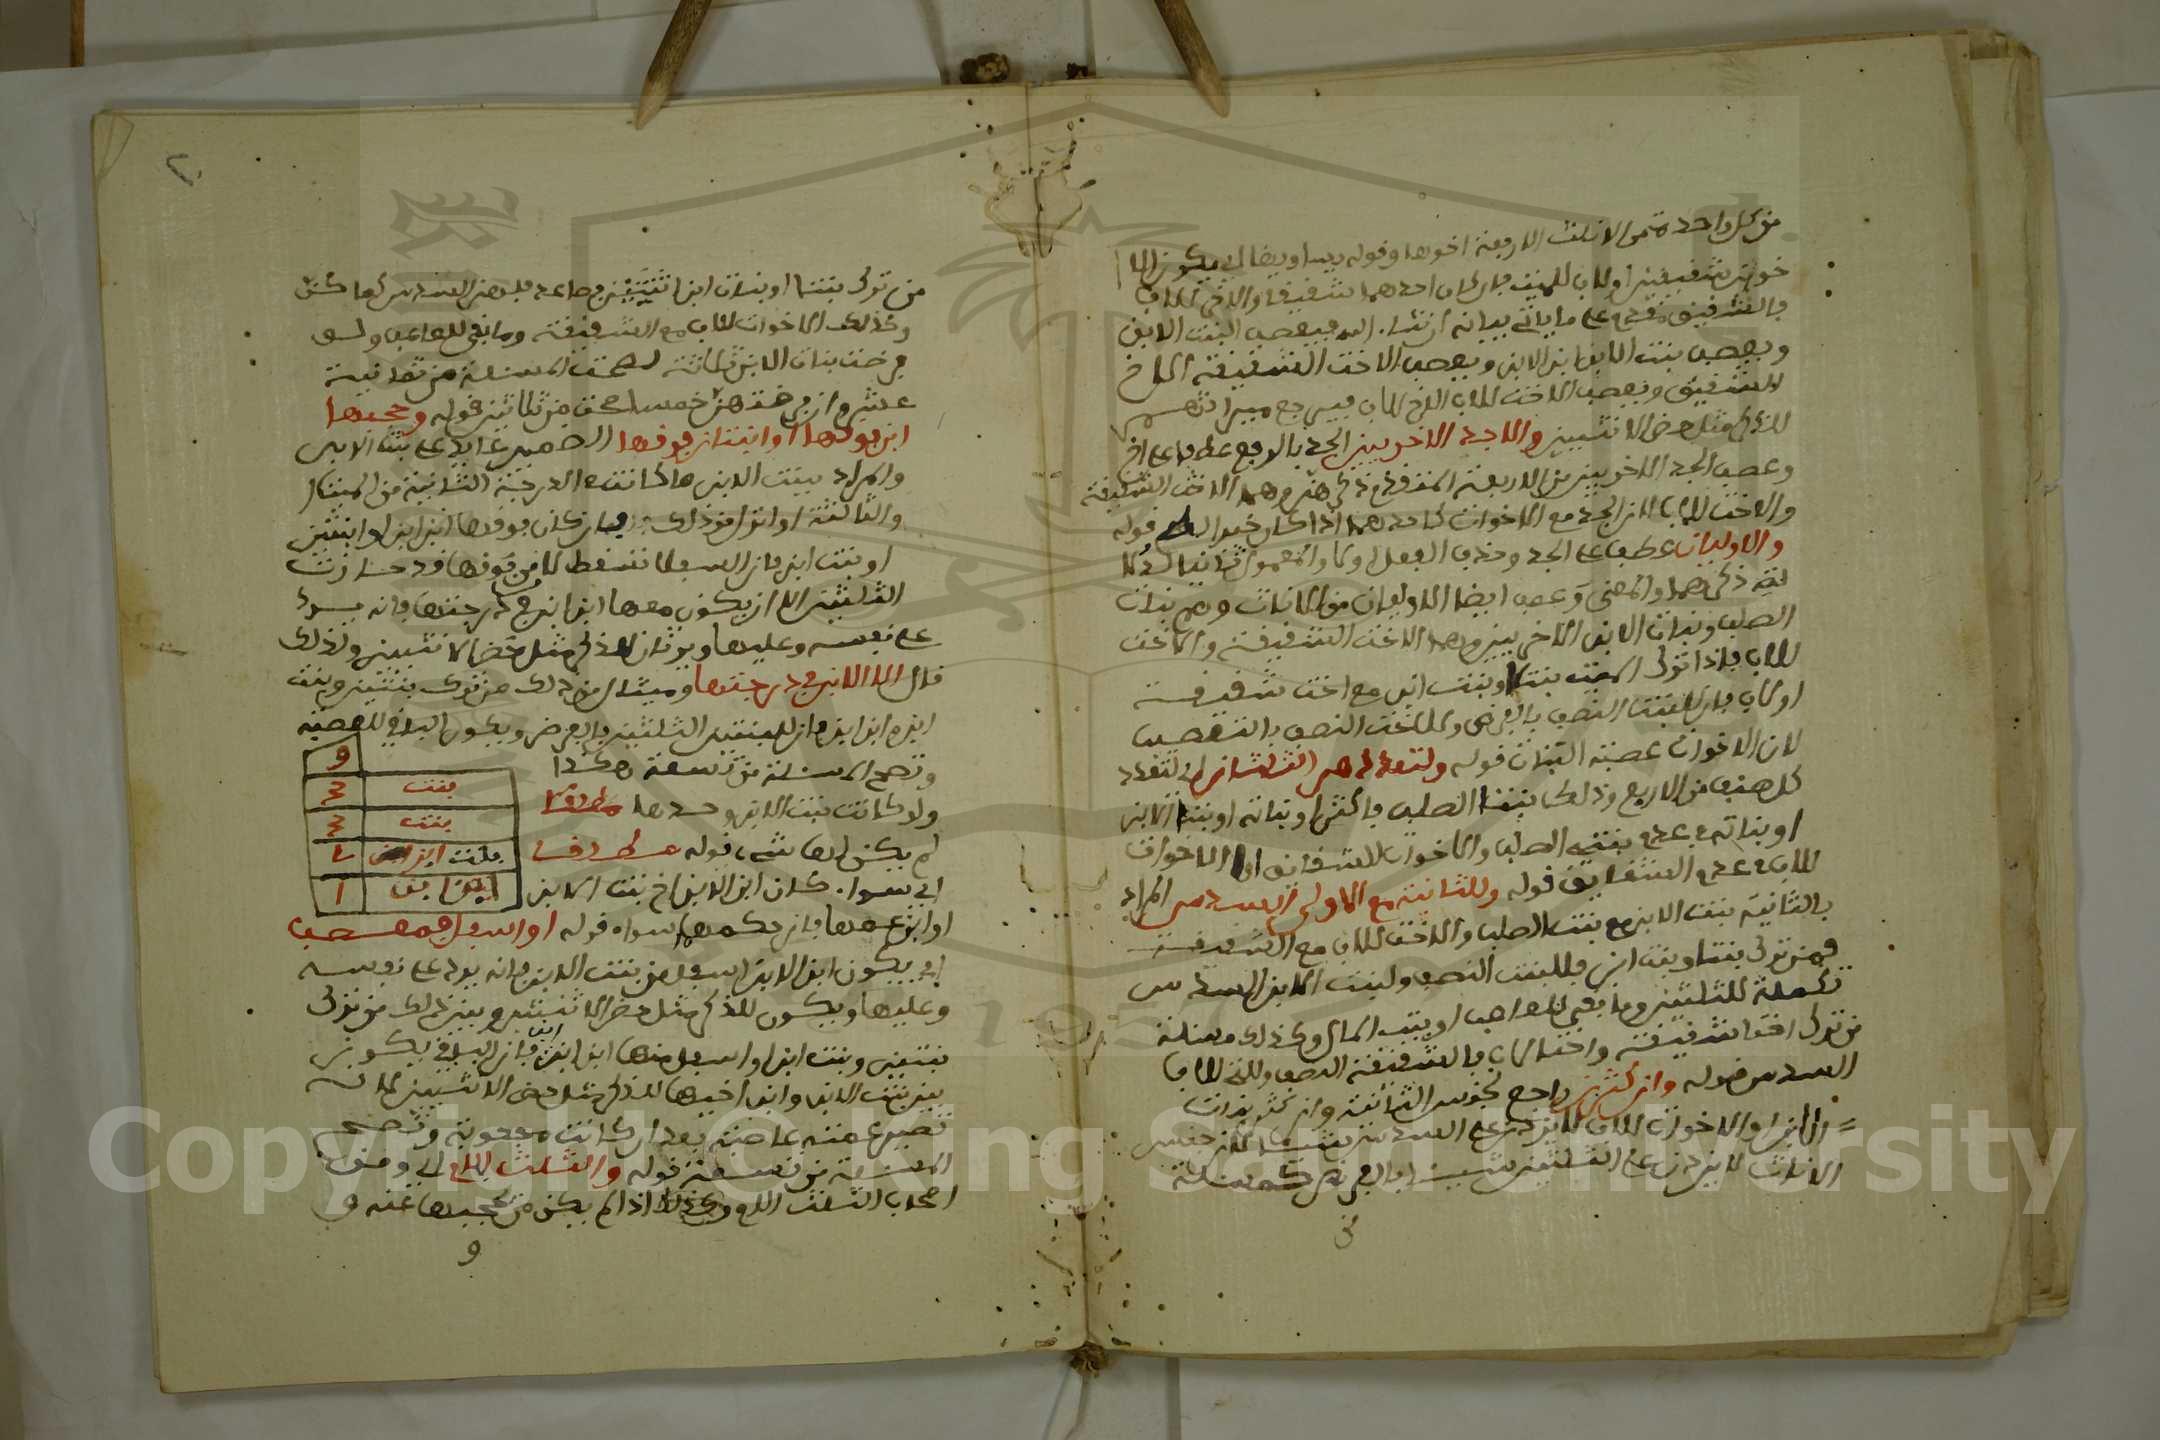 من كل واحدة من الاناث الاربعة اخوها وقوله يساويها اي يكون الا
خوان شقيقين او لاب للميت فان كان احدهما شقيقا والاخر للاب
فالشقيق مقدم على ما ياتي بيانه ان شاء الله فيعصب البنت الابن
ويعصب بنت الابن ابن الابن ويعصب الاخت الشقيقة الاخ
الشقيق ويعصب الاخت للاب الاخ للاب فيرجع ميراثهم
للذكر مثل حظ الانثيين والجد الاخريين الجد بالرفع عطفا على اخ
وعصب الجد الاخريين من الاربعة المتقدم ذكرهن وهما الاخت الشقيقة
والاخت للاب لان الجد مع الاخوات كاحدهما اذا كان خيرا له قوله
والاوليان عطف على الجد وحذف الفعل اولا والمعمول ثانيا لدلا
لة ذكرهما والمعنى وعصب ايضا الاوليان من الاناث وهم بنات
الصلب وبنات الابن الاخريين وهما الاخت الشقيقة والاخت
للاب فاذا ترك الميت بنتا او بنت ابن مع اخت شقيقة
او لاب فان للبنت النصف بالفرض وللاخت النصف بالتعصيب
لان الاخوات عصبة البنات قوله ولتعددهن الثلثان اي لتعدد
كل صنف من الاربع وذلك بنتا الصلب فاكثر او بناته او بنتا الابن
او بناته مع عدم بنت الصلب والاخوات الشقائق او الاخوات
للاب مع عدم الشقايق قوله وللثانية مع الاولى السدس المراد
بالثانية بنت الابن مع بنت الصلب والاخت للاب مع الشقيقة
فمن ترك بنتا وبنت ابن فللبنت النصف ولبنت الابن السدس
تكملة للثلثين وما بقي للعاصب او بيت المال وكذلك مسئلة
من ترك اختا شقيقة واختا لاب فالشقيقة النصف وللاخت للاب
السدس قوله وان كثرن راجع لجنس الثانية وان كثر بنات
الابن او الاخوات للاب لا يزدن على السدس شيئا لان جنس
الاناث لا يزدن على الثلثين شيئا بالفرض كمسئلة
من
٢٠
من ترك بنتا او بنات ابن اثنتين فصاعدا فلهن السدس كما كنن
وكذلك الاخوات للاب مع الشقيقة وما بقي للعاصب ولو
فرضت بنات الابن ثلاثة لصحت المسئلة من ثمانية
عشر وان فرضتهن خمسا صحت من ثلاثين قوله وحجبها
ابن فوقها او ابنتان فوقها الضمير عايد على بنت الابن
والمراد ببنت الابن ما كانت في الدرجة الثانية من الميت او
والثالثة او انزل من ذلك فان كان فوقها ابن ابن او ابنتين
او بنت ابن فان السفلا تسقط لان من فوقها قد حازت
الثلثين الا ان يكون معها ابن ابن في درجتها فانه يرد
على نفسه وعليها ويرثان للذكر مثل حظ الانثيين ولذلك
قال الا الابن في درجتها ومثال من ذلك من ترك بنتين وبنت
ابن وابن ابن فان للبنتين الثلثين بالفرض ويكون الباقي للعصبة
وتصح المسئلة من تسعة هكذا
ولو كانت بنت الابن وحدها مطلقا
لم يكن لها شيء قوله مطلقا
اي سواء كان ابن الابن اخ بنت الابن
او ابن عمها فان حكمهما سواء قوله او اسفل فمعصب
اي يكون ابن الابن اسفل من بنت الابن فانه يرد على نفسه
وعليها ويكون للذكر مثل حظ الانثيين ومن ذلك من ترك
بنتين وبنت ابن واسفل منها ابن ابن ابن فان الباقي يكون
بين بنت الابن وابن اخيها للذكر مثل حظ الانثيين لانه
تصير عمته عاصبة بعد ان كانت محجوبة وتصح
المسئلة من تسعة قوله والثلث للام اي ومن
اصحاب الثلث الام وذلك اذا لم يكن من يحجبها عنه و
و
٩
بنت ٣
بنت ٣
بنت ابن ١
ابن ابن ٢
Copyright © King Saud University